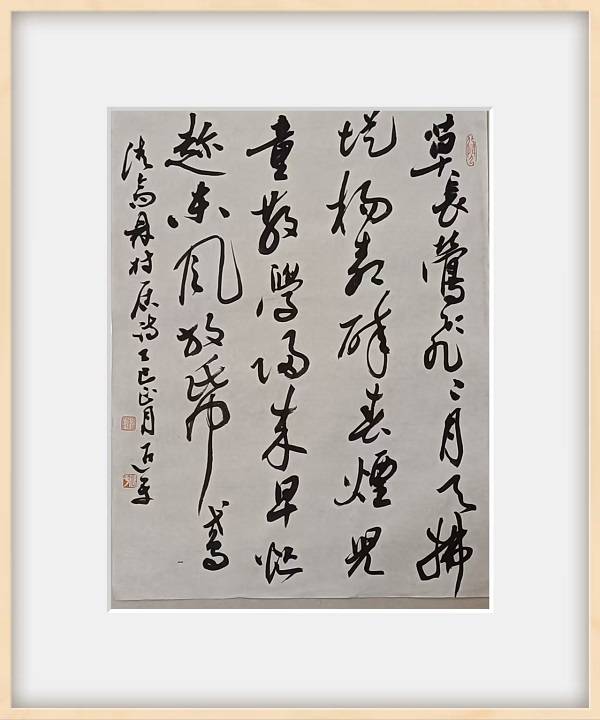 草長鶯飛二月天拂
堤楊柳醉春煙兒
童散學歸來早忙
趁東風放帋鳶
清高鼎村居詩乙巳正月